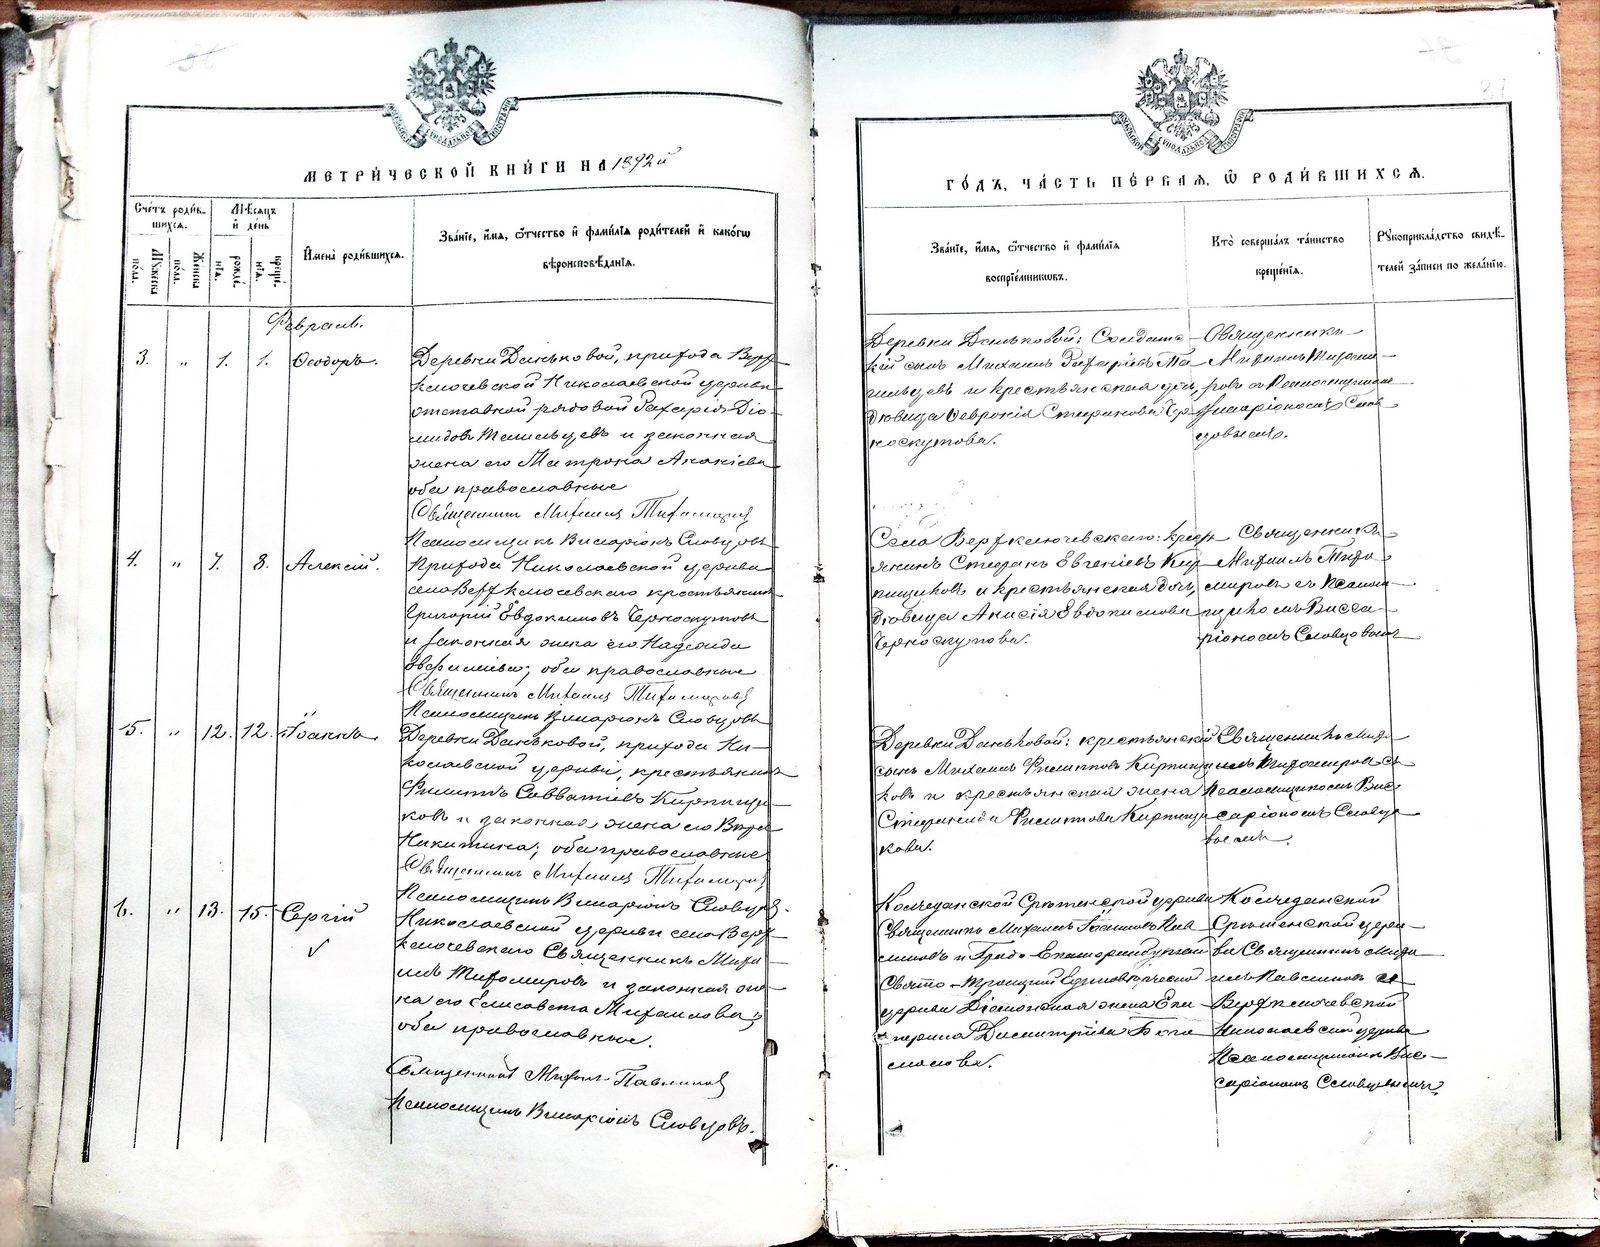 МЕТРИ́ЧЕСКОЙ КНИ́ГИ НА 1892й
Сче́тъ роди́в-
шихся.
Мѣ́сяцъ
и де́нь
Му́жеска
по́ла.
Же́нска
по́ла.
рожде́-
нія.
креще́-
нія.
Имена̀ роди́вшихся.
Зва́ніе, и́мя, ѻ҆́тчество и фами́лія роди́телей и како́гѡ
вѣроисповѣ́данія.
Февраль.
3. " 1. 1. Ѳеодоръ.
Деревни Даньковой, прихода Верх-
ключевской Николаевской церкви
отставной рядовой Захарія Діо-
мидовъ и законная
жена его Матрона Ананіева
оба православные
Священникъ Михаилъ Тихомировъ
Псаломщикъ Виссаріонъ Словцовъ
4. " 7. 8. Алексій.
Прихода Николаевской церкви
села Верхключевскаго крестьянинъ
Григорій Евдокимовъ Черноскутовъ
и законная жена его Надежда
оба православные
Священникъ Михаилъ Тихомировъ
Псаломщикъ Виссаріонъ Словцовъ
5. " 12. 12. Іоаннъ
Деревни Даньковой, прихода Ни-
колаевской церкви, крестьянинъ
Филиппъ Савватіевъ Кирпищи-
ковъ и законная жена его Вѣра
Никитина; оба православные
Священникъ Михаилъ Тихомировъ
Псаломщикъ Виссаріонъ Словцовъ.
6. " 13. 15. Сергій
Николаевской церкви села Верх-
ключевскаго Священникъ Миха-
илъ Тихомировъ и законная же-
на его Елисавета Михаилова;
оба православные.
Священникъ Михаилъ
Псаломщикъ Виссаріонъ Словцовъ.
ГО́ДЪ, ЧА́СТЬ ПЕ́РВАЯ, Ѡ РОДИ́ВШИХСЯ.
Зва́ніе, и́мя, ѻ҆́тчество и фами́лія
воспріе́мниковъ.
Кто̀ соверша́лъ та́инство
креще́нія.
Рукоприкла́дство свидѣ́-
телей за́писи по жела́нію.
Деревни Даньковой: Солдат-
скій сынъ Михаилъ Захаріевъ
и крестьянская дочь,
дѣвица Ѳевронія Чер-
носкутова.
Священникъ
Михаилъ Тихоми-
ровъ съ Псаломщикомъ
Виссаріономъ Слов-
цовымъ.
Села Верхключевскаго: кресть-
янинъ Стефанъ Евгеніевъ Кир-
пищиковъ и крестьянская дочь,
дѣвица Анисія Евдокимова
Черноскутова.
Священникъ
Михаилъ Тихо-
мировъ съ Псалом-
щикомъ Висса-
ріономъ Словцовымъ
Деревни Даньковой: крестьянскій
сынъ Михаилъ Филипповъ Кирпищи-
ковъ и крестьянская жена
Филиппова Кирпищи-
кова.
Священникъ Миха-
илъ Тихомировъ съ
Псаломщикомъ Вис-
саріономъ Словцо-
вымъ.
Колчеданской Срѣтенской церкви
Священникъ Михаилъ Іоанновъ
и Градо-Екатеринбургской
Свято-Троицкой Единовѣрческой
церкви Діаконская жена Ека-
терина Димитріева Бого-
слова.
Колчеданской
Срѣтенской церк-
ви Священникъ Миха-
илъ съ
Верхключевской
Николаевской церкви
Псаломщикомъ Вис-
саріономъ Словцовымъ